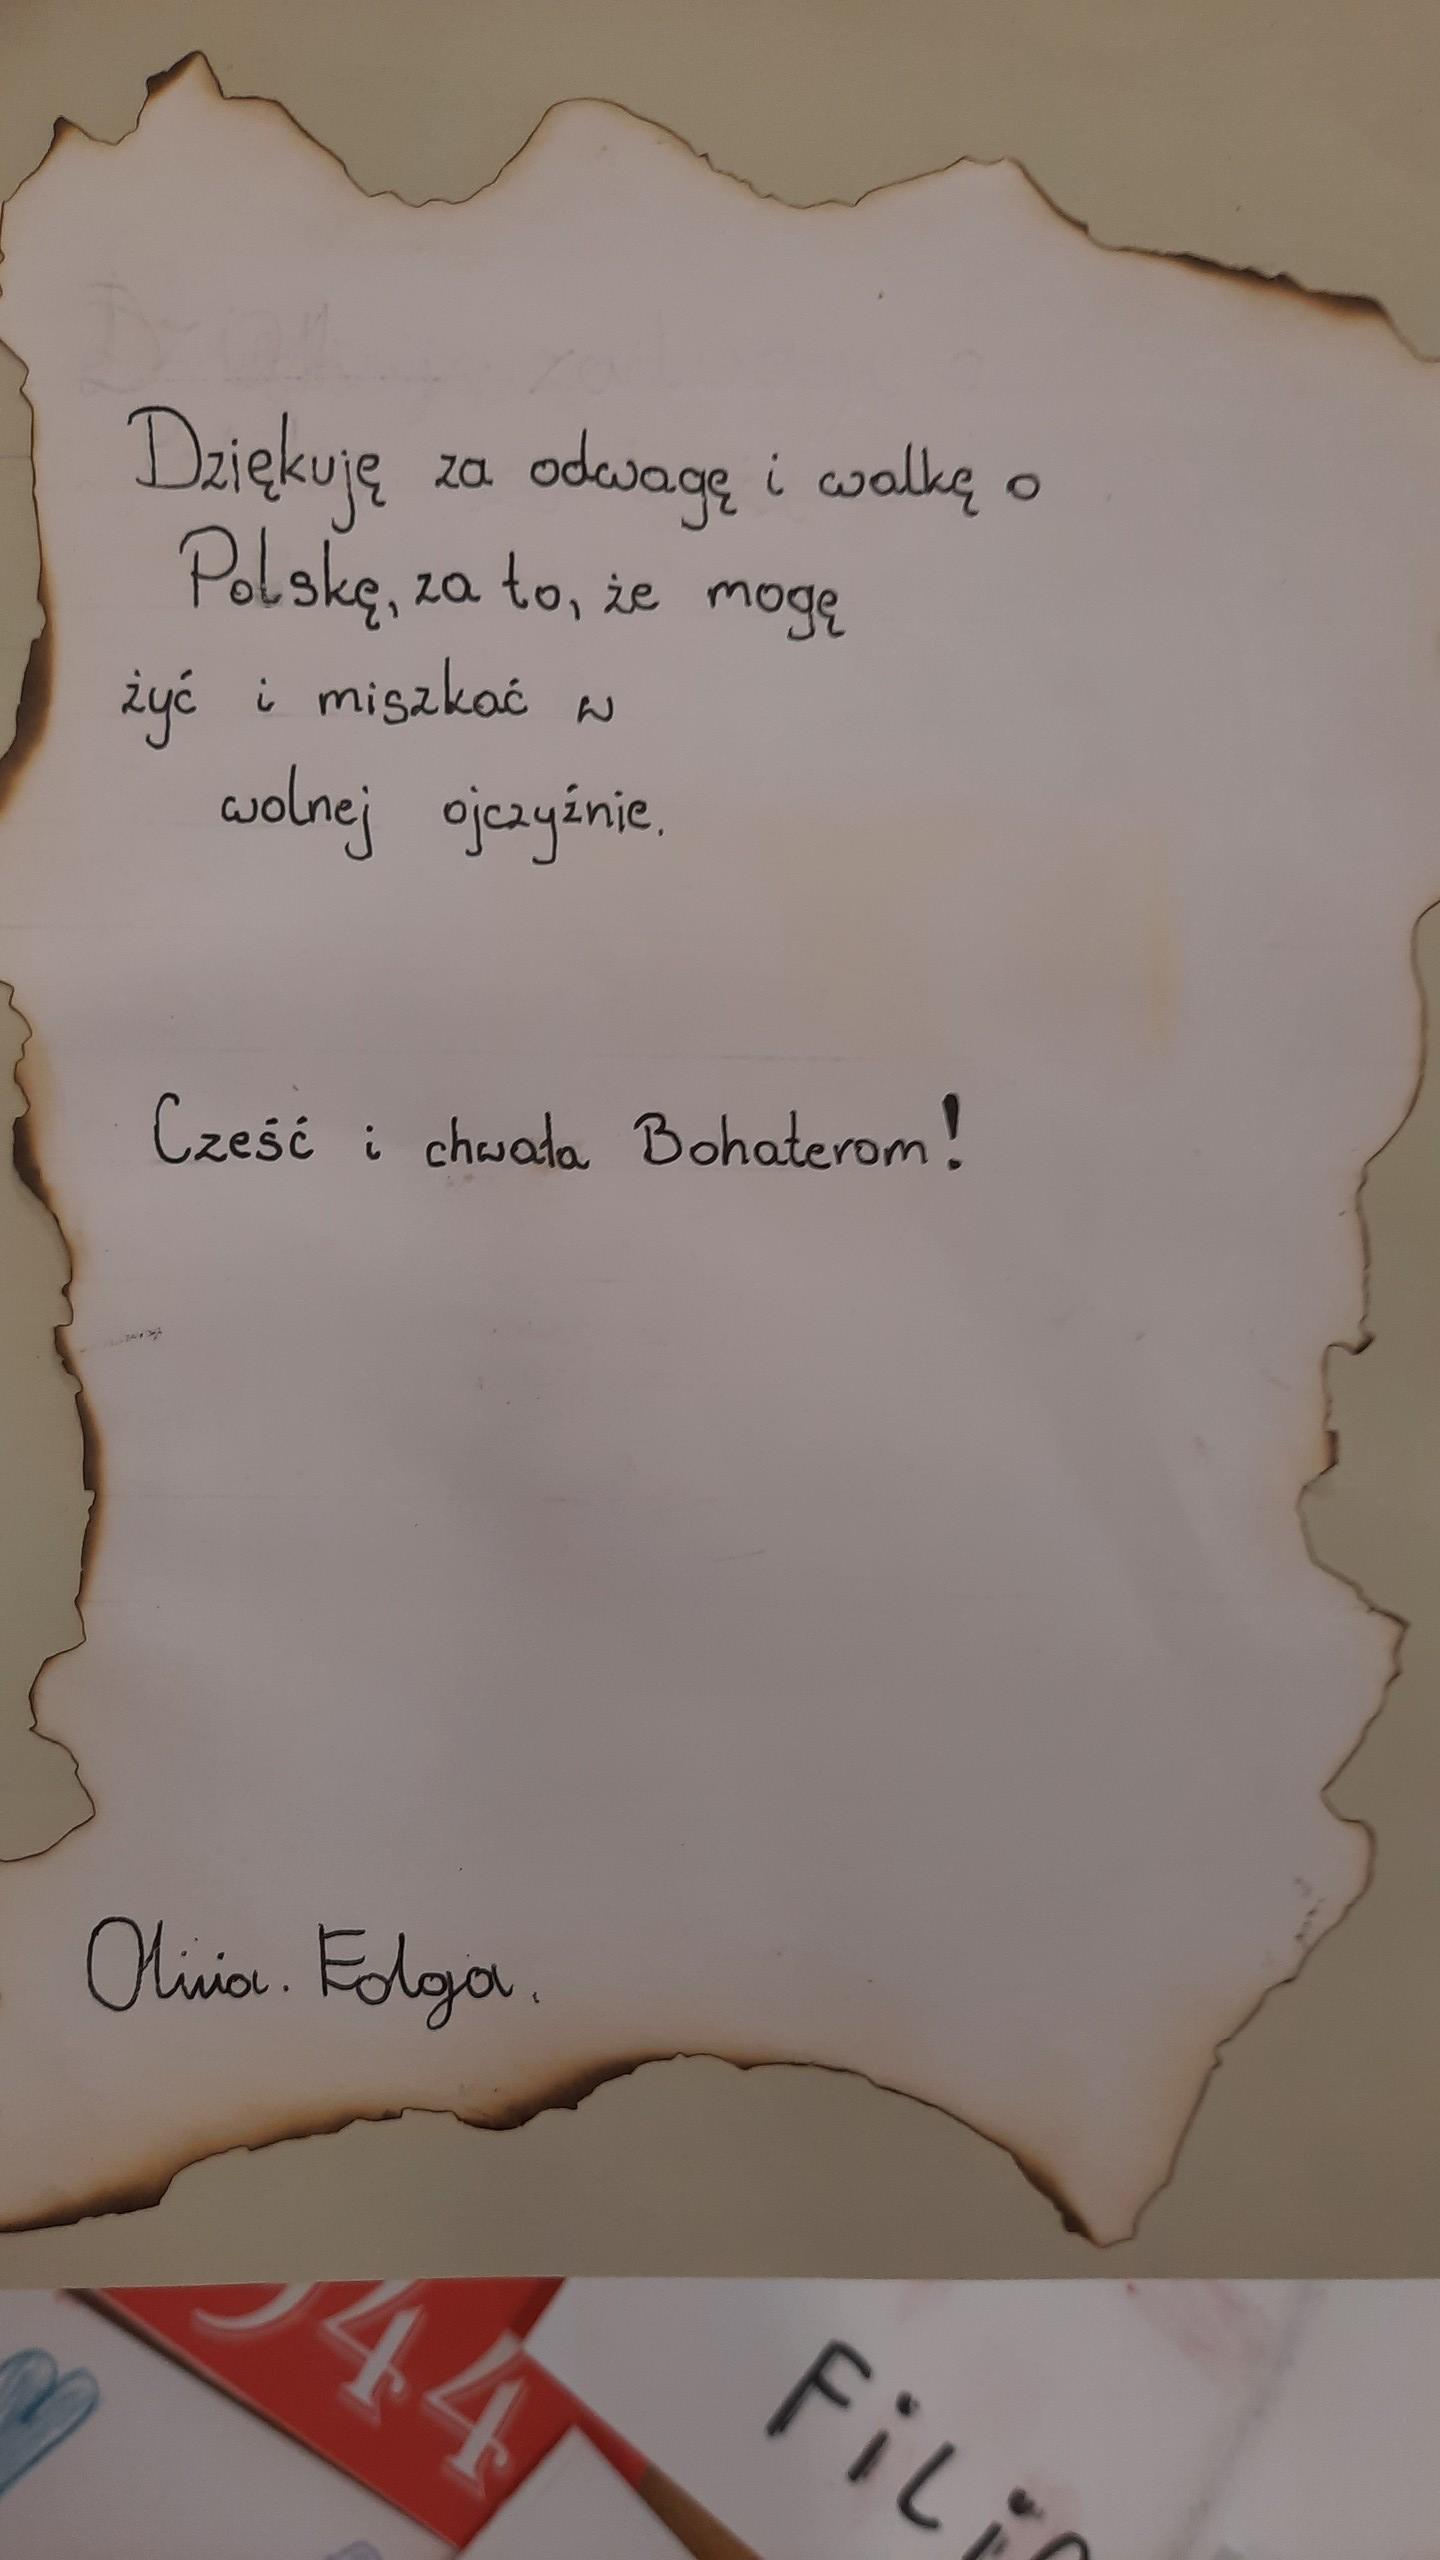 Dziękuję za odwagę i walkę o
Polskę, za to, że mogę
żyć i miszkać w
wolnej ojczyźnie.
Cześć i chwała Bohaterom!
Oliwia. Folga.
44